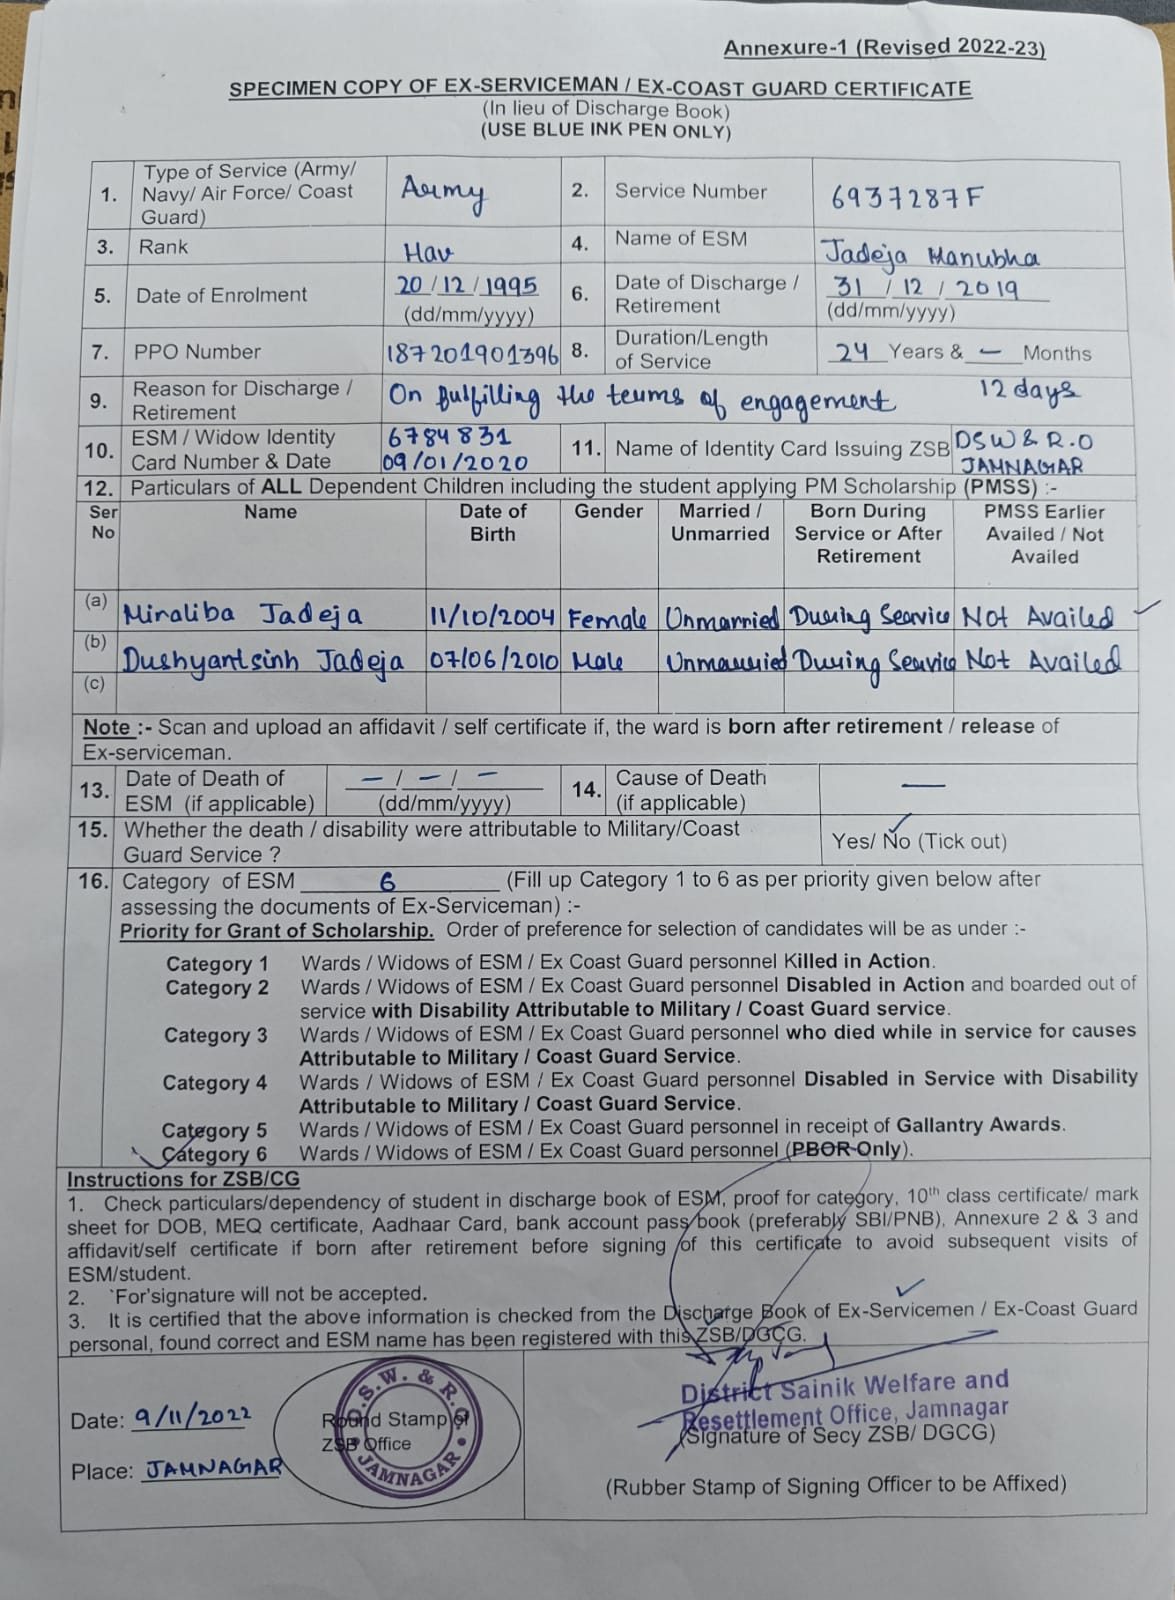 Annexure-1 (Revised 2022-23)
SPECIMEN COPY OF EX-SERVICEMAN / EX-COAST GUARD CERTIFICATE
(In lieu of Discharge Book)
(USE BLUE INK PEN ONLY)
1. Type of Service (Army/ Navy/ Air Force/ Coast Guard) Army 2. Service Number 6937287F
3. Rank Hav 4. Name of ESM Jadeja Manubha
5. Date of Enrolment 20/12/1995 (dd/mm/yyyy) 6. Date of Discharge / Retirement 31/12/2019 (dd/mm/yyyy)
7. PPO Number 187201901396 8. Duration/Length of Service 24 Years & – Months
12 days
9. Reason for Discharge / Retirement On fulfilling the terms of engagement
10. ESM / Widow Identity Card Number & Date 6784831 09/01/2020 11. Name of Identity Card Issuing ZSB DSW & R.O JAMNAGAR
12. Particulars of ALL Dependent Children including the student applying PM Scholarship (PMSS) :-
Ser No Name Date of Birth Gender Married / Unmarried Born During Service or After Retirement PMSS Earlier Availed / Not Availed
(a) Miraliba Jadeja 11/10/2004 Female Unmarried During Searvice Not Availed
(b) Dushyantsinh Jadeja 07/06/2010 Male Unmarried During Searvice Not Availed
(c)
Note :- Scan and upload an affidavit / self certificate if, the ward is born after retirement / release of
Ex-serviceman.
13. Date of Death of ESM (if applicable) – / – / – (dd/mm/yyyy) 14. Cause of Death (if applicable) —
15. Whether the death / disability were attributable to Military/Coast Guard Service ? Yes/ No (Tick out)
16. Category of ESM 6 (Fill up Category 1 to 6 as per priority given below after
assessing the documents of Ex-Serviceman) :-
Priority for Grant of Scholarship. Order of preference for selection of candidates will be as under :-
Category 1 Wards / Widows of ESM / Ex Coast Guard personnel Killed in Action.
Category 2 Wards / Widows of ESM / Ex Coast Guard personnel Disabled in Action and boarded out of
service with Disability Attributable to Military / Coast Guard service.
Category 3 Wards / Widows of ESM / Ex Coast Guard personnel who died while in service for causes
Attributable to Military / Coast Guard Service.
Category 4 Wards / Widows of ESM / Ex Coast Guard personnel Disabled in Service with Disability
Attributable to Military / Coast Guard Service.
Category 5 Wards / Widows of ESM / Ex Coast Guard personnel in receipt of Gallantry Awards.
Category 6 Wards / Widows of ESM / Ex Coast Guard personnel (PBOR Only).
Instructions for ZSB/CG
1. Check particulars/dependency of student in discharge book of ESM, proof for category, 10th class certificate/ mark
sheet for DOB, MEQ certificate, Aadhaar Card, bank account pass book (preferably SBI/PNB), Annexure 2 & 3 and
affidavit/self certificate if born after retirement before signing of this certificate to avoid subsequent visits of
ESM/student.
2. `For'signature will not be accepted.
3. It is certified that the above information is checked from the Discharge Book of Ex-Servicemen / Ex-Coast Guard
personal, found correct and ESM name has been registered with this ZSB/DGCG.
Date: 9/11/2022
Place: JAMNAGAR
Round Stamp of
ZSB Office
D.S.W. & R.O.
JAMNAGAR
District Sainik Welfare and
Resettlement Office, Jamnagar
(Signature of Secy ZSB/ DGCG)
(Rubber Stamp of Signing Officer to be Affixed)